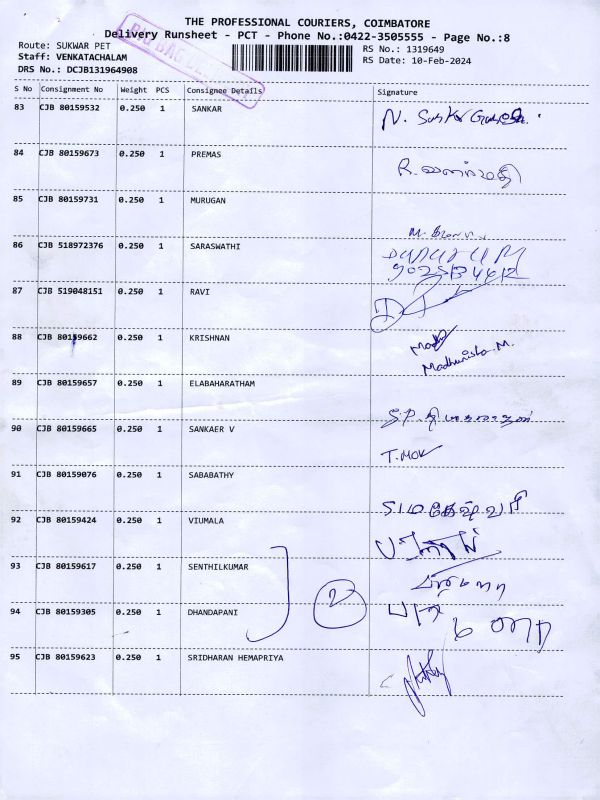 THE PROFESSIONAL COURIERS, COIMBATORE
Delivery Runsheet - PCT - Phone No.:0422-3505555 - Page No.:8
Route: SUKWAR PET
RS No.: 1319649
Staff: VENKATACHALAM
RS Date: 10-Feb-2024
DRS No.: DCJB131964908
BIG BAG
S No Consignment No Weight PCS Consignee Details Signature
83 CJB 80159532 0.250 1 SANKAR
84 CJB 80159673 0.250 1 PREMAS
85 CJB 80159731 0.250 1 MURUGAN
86 CJB 518972376 0.250 1 SARASWATHI
87 CJB 519048151 0.250 1 RAVI
88 CJB 80159662 0.250 1 KRISHNAN
Madhumisha.M.
89 CJB 80159657 0.250 1 ELABAHARATHAM
90 CJB 80159665 0.250 1 SANKAER V
91 CJB 80159076 0.250 1 SABABATHY
92 CJB 80159424 0.250 1 VIUMALA
93 CJB 80159617 0.250 1 SENTHILKUMAR
2
94 CJB 80159305 0.250 1 DHANDAPANI
95 CJB 80159623 0.250 1 SRIDHARAN HEMAPRIYA